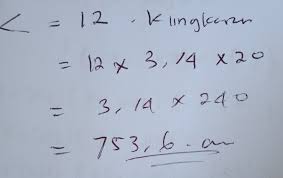 L = 12 . K lingkaran
= 12 x 3,14 x 20
= 3,14 x 240
= 753,6 cm